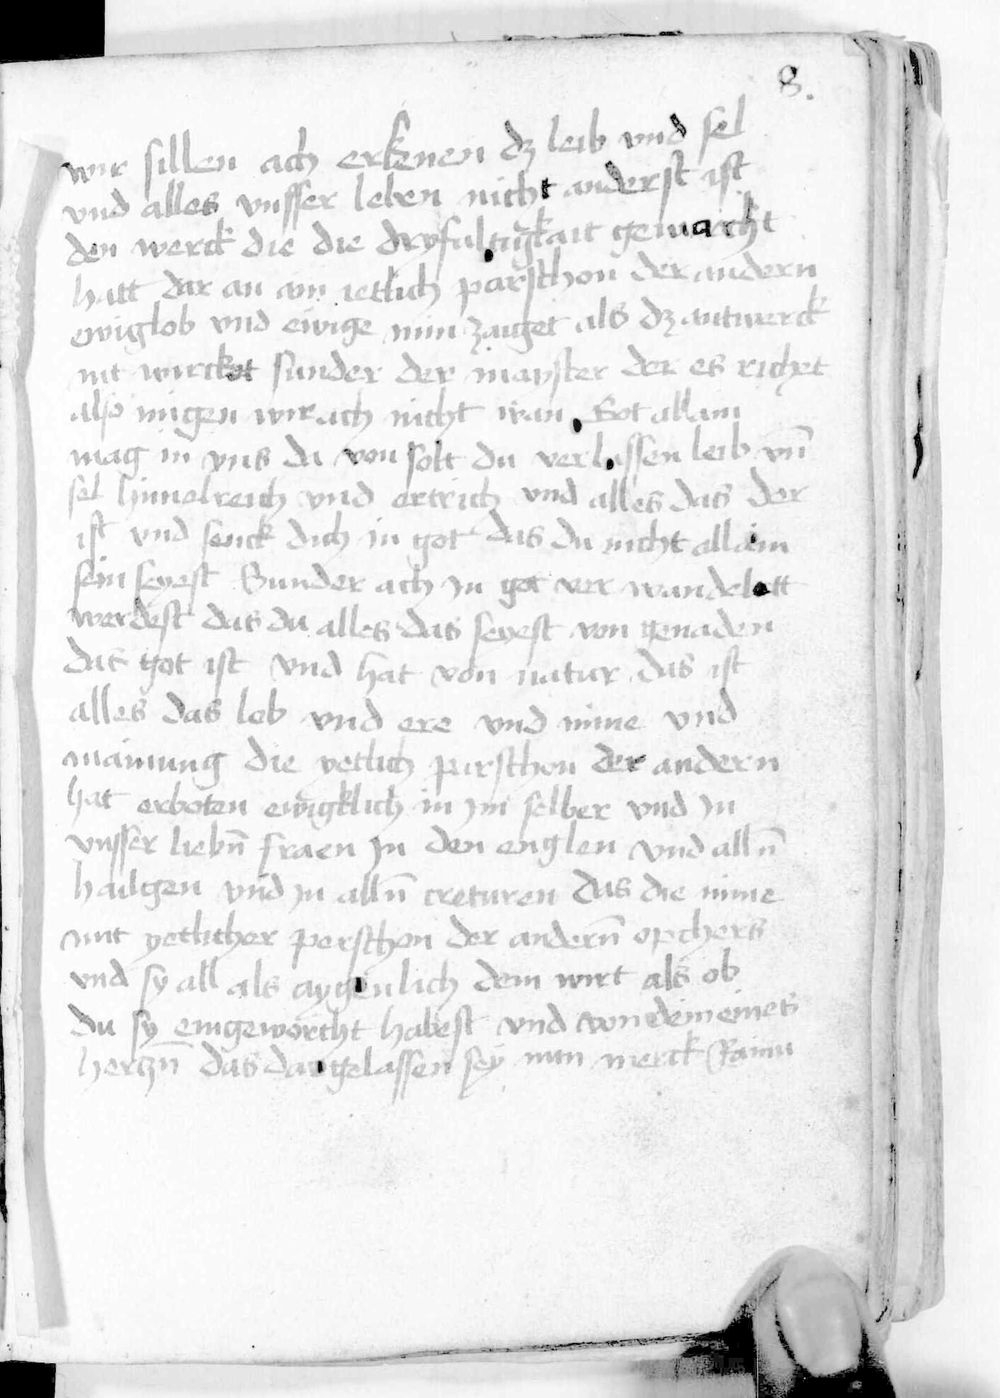 8.
wir sillen ach erkenen dz leib vnd sel
vnd alles vnsser leben nicht anderst ist
den werck die die dryfaltigkait gewarcht
hatt dar an ain ietlich parschon der andern
ewiglob vnd ewige min zaiget als dz antwerck
nit wircket sunder der mayster der es richet
also migen wir ach nicht wan Got allain
mag in vns da von solt du verlassen leib vn̄
sel himelreich vnd ertrich vnd alles das der
ist vnd senck dich in got das du nicht allain
sein seyest Sunder ach in got ver wandelett
werdest das du alles das seyest von genaden
das got ist vnd hat von natur das ist
alles das lob vnd ere vnd mine vnd
mainung die yetlich parschon der andern
hat erboten ewigklich in im selber vnd in
vnsser liebn̄ fraen in den englen vnd alln̄
hailgen vnd in alln̄ creturen das die mine
mit yetlicher perschon der andern̄ opchers
vnd sy all als aygenlich dem wirt als ob
du sy emgeworcht habest vnd von deim eines
hertzn̄ das da gelassen sey nun merck Rainu